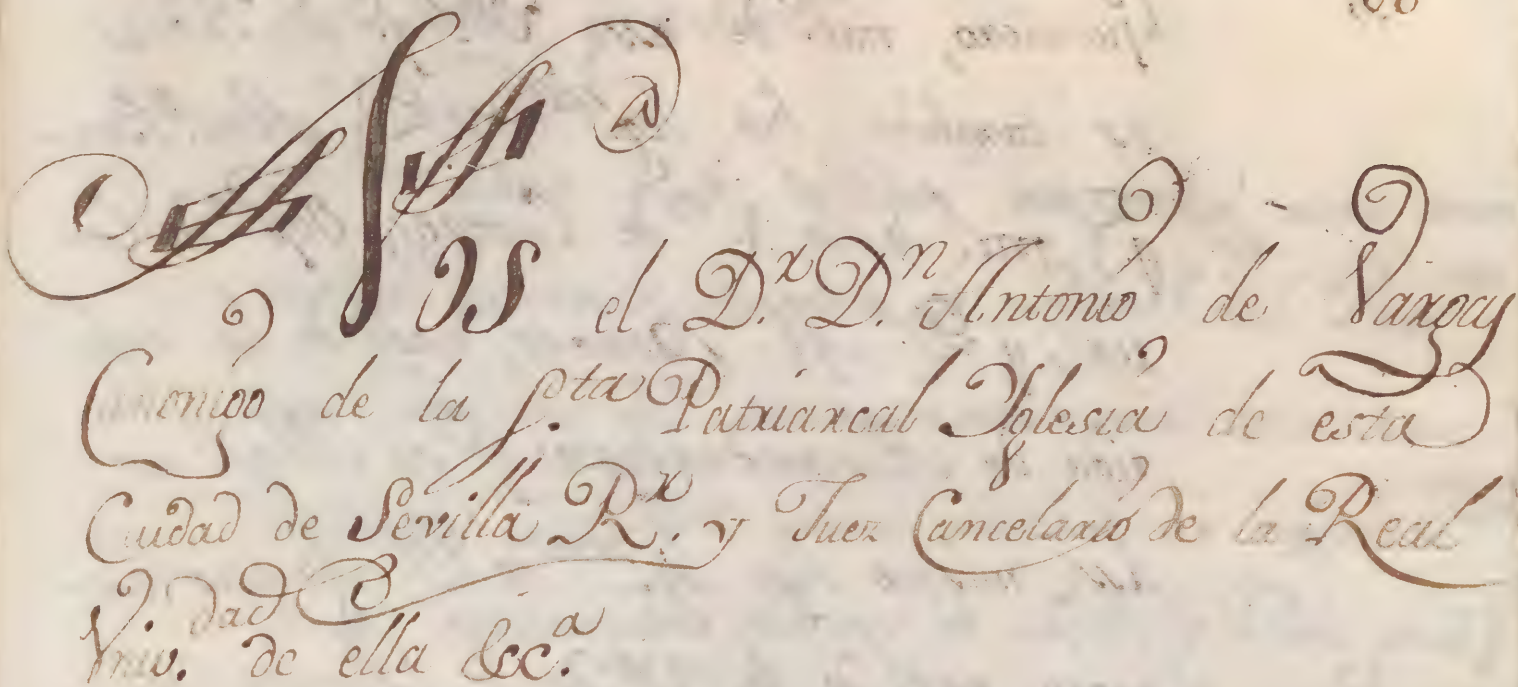 NOS el D.r D.n Antonio de Vargas
Canonigo de la S.ta Patriarcal Yglesia de esta
Ciudad de Sevilla R.r y Juez Cancelario de la Real
Univ.dad de ella &c.a